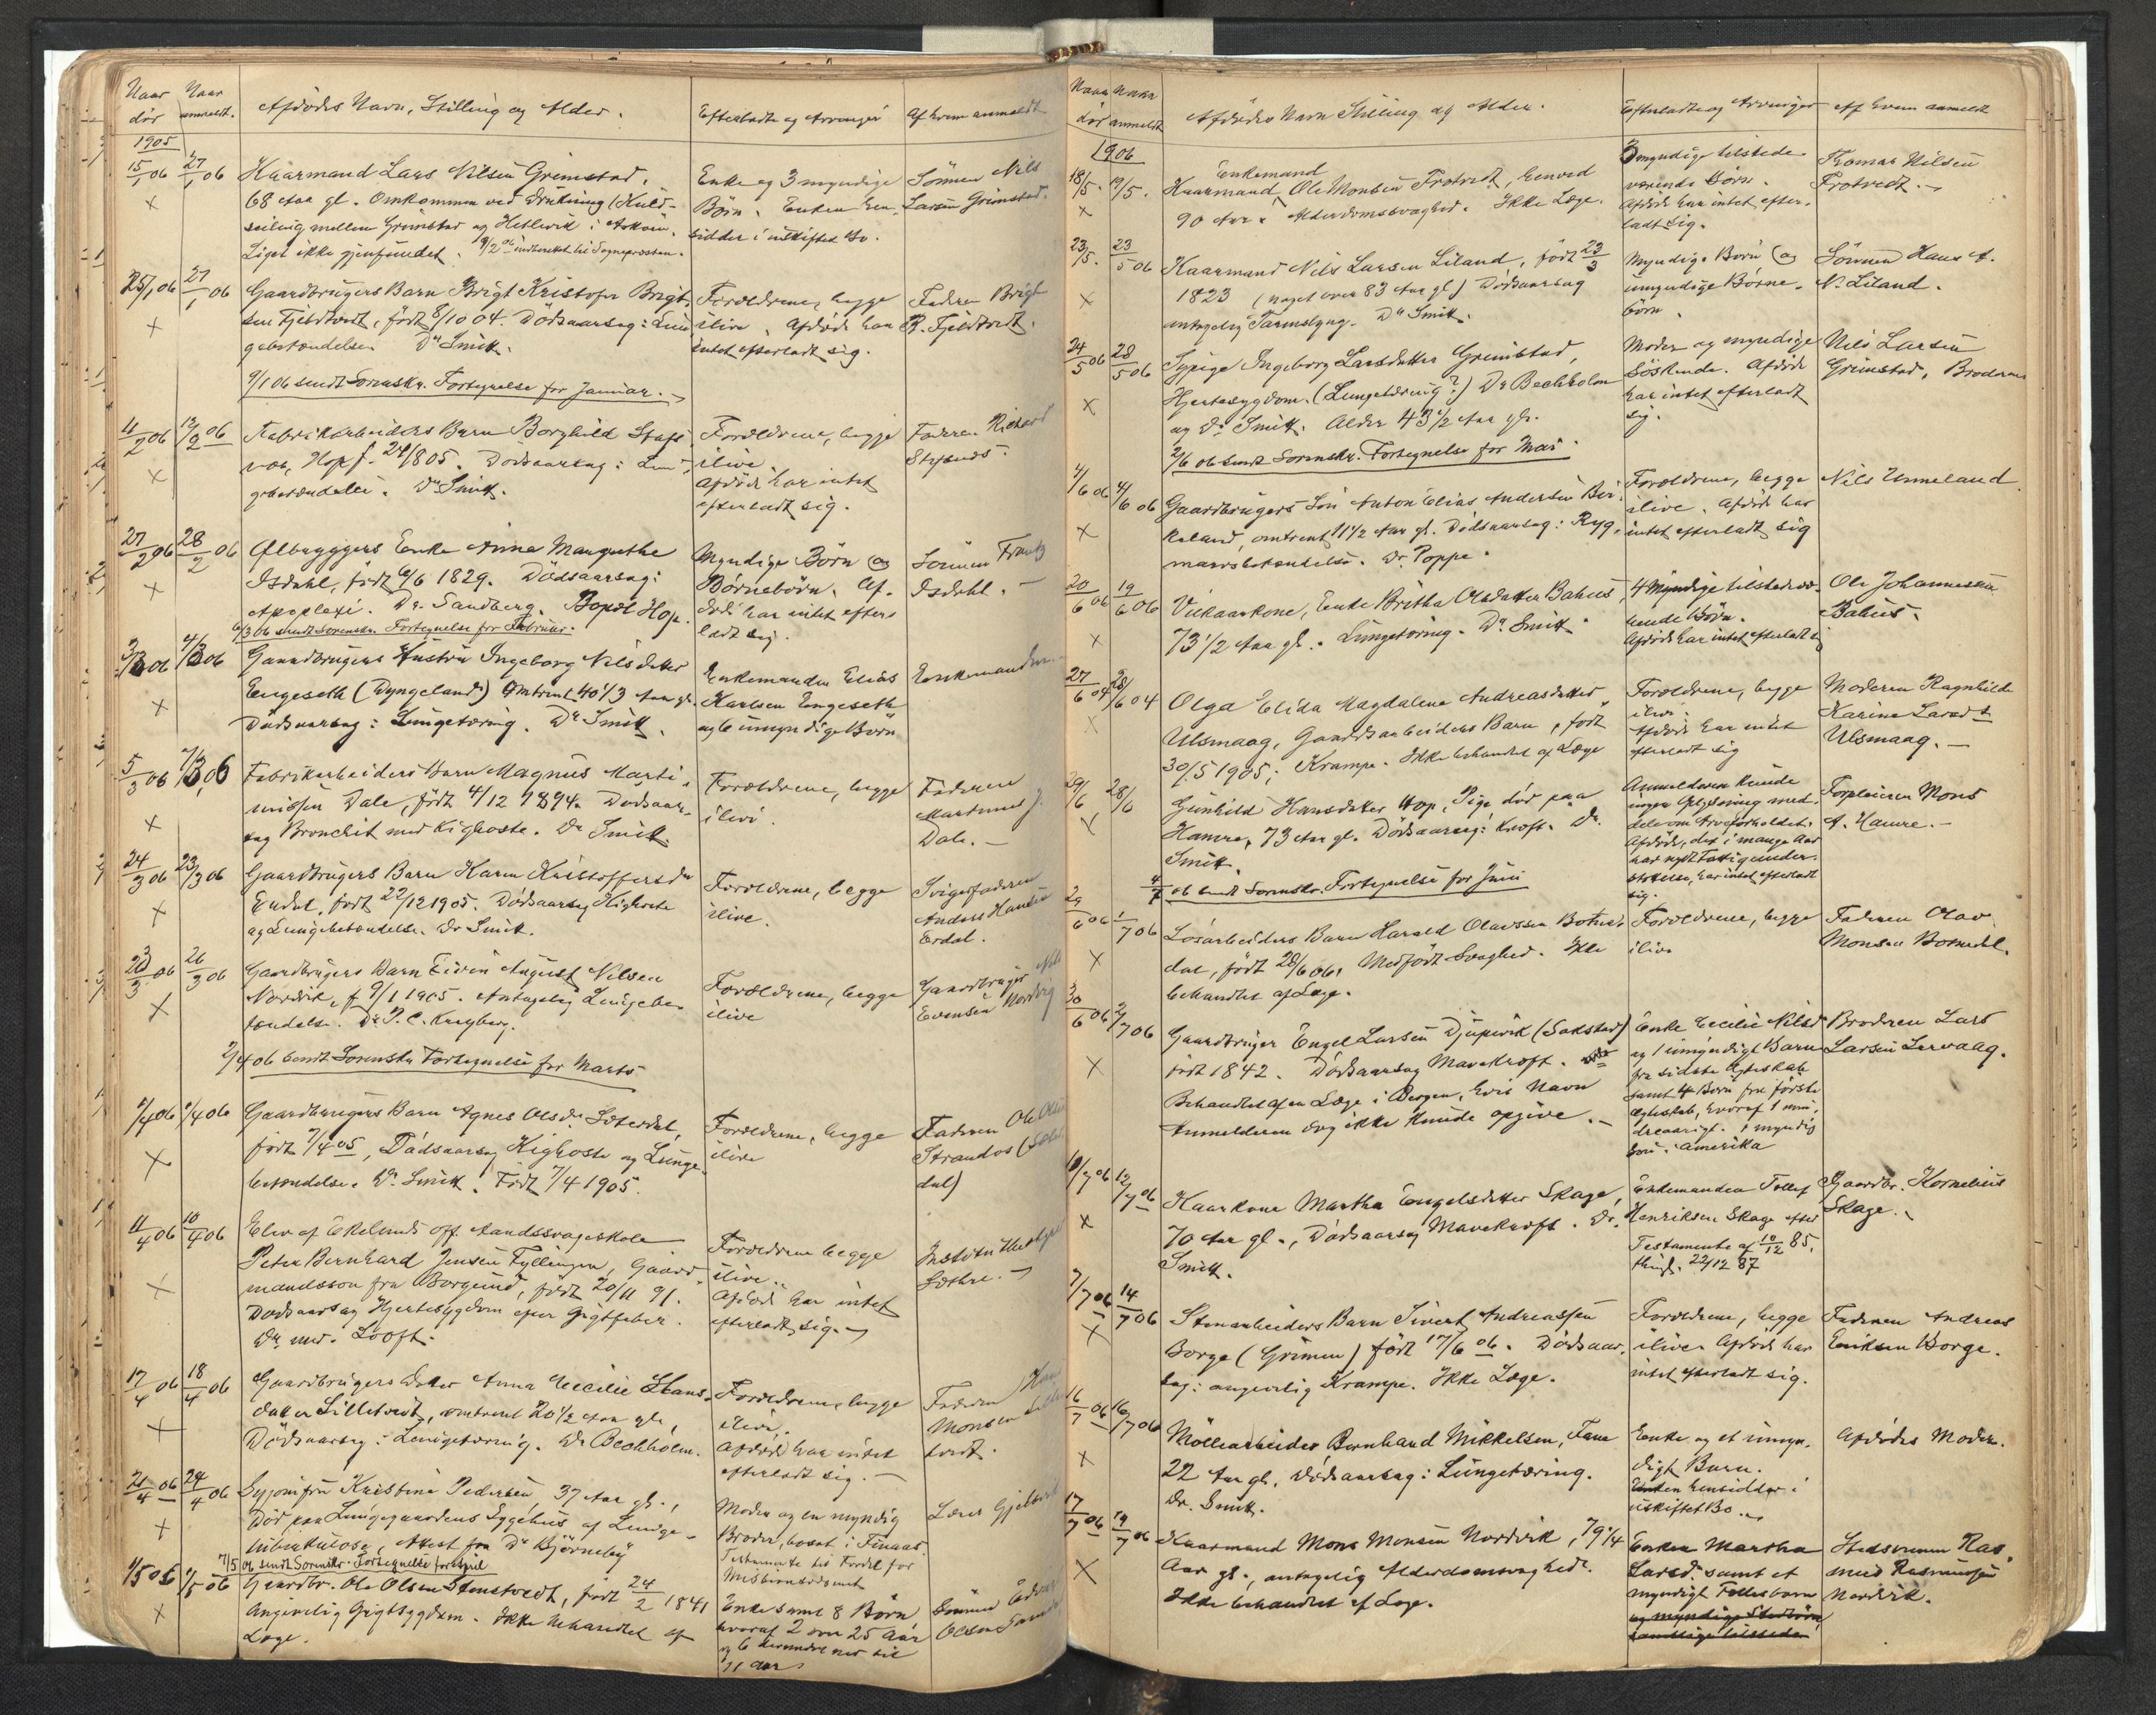 Naar dör
Naar anmeldt.
Afdödes Navn, Stilling og Alder.
Efterladte og Arvinger
Af hvem anmeldt
1905
15/1 06 27/1 06
Kaarmand Lars Nilsen Grimstad,
68 Aar gl. Omkommen ved Drukning (Kuld-
seiling mellem Grimstad og Hetlevik i Askøin.
Liget ikke gjenfundet. 9/2 06 indberettet til Sognepresten.
Enke og 3 myndige
Börn. Enken hen-
sidder i uskiftet Bo.
Sönnen Nils
Larsen Grimstad.
25/1 06 27/1 06
Gaardbrugers Barn Brigt Kristofer Brigt-
sen Fjeldtvedt, födt 8/10 04. Dödsaarsag: Lun
gebetændelse. Dr Smitt.
Forældrene, begge
ilive. Afdöde har
intet efterladt sig.
Faderen Brigt
R. Fjeldtvedt.
9/1 06 sendt Sorenskr. Fortegnelse for Januar.
11/2 06 12/2 06
Fabrikarbeiders Barn Borghild Styfs
vob, Hop f. 24/8 05. Dödsaarsag: Lun
gebetændelse. Dr Smitt.
Forældrene, begge
ilive.
Afdöde har intet
efterladt sig.
Faderen Richard
27/2 06 28/2 06
Ølbryggers Enke Anna Margrethe
Isdahl, födt 6/6 1829. Dödsaarsag:
Apoplexi. Dr. Sandberg. Bopæl Hop.
6/3 06 sendt Sorenskr. Fortegnelse for Februar.
Myndige Börn og
Börnebörn. Af-
döde har intet efter
ladt sig.
Sönnen Frantz
Isdahl.
3/3 06 4/3 06
Gaardbrugers Hustru Ingeborg Nilsdatter
Engeseth (Dyngeland) Omtrent 40 1/3 Aar gl.
Dödsaarsag: Lungetæring. Dr Smitt.
Enkemanden Elias
Karlsen Engeseth
og 6 umyndige Börn
Enkemanden
5/3 06 7/3 06
Fabrikarbeiders Barn Magnus Marti-
nussen Dale, födt 4/12 1894. Dödsaar-
sag Bronchit med Kighoste. Dr Smitt.
Forældrene, begge
ilive.
Faderen
Martinus J.
Dale.
24/3 06 23/3 06
Gaardbrugers Barn Karen Kristoffersdr
Erdal, födt 22/12 1905. Dödsaarsag Kighoste
og Lungebetændelse. Dr Smitt.
Forældrene, begge
ilive.
Svigerfaderen
Anders Hansen
Erdal.
23/3 06 26/3 06
Gaardbrugers Barn Eivin August Nilsen
Nordvik, f 9/1 1905. Antagelig Lungebe-
tændelse. Dr P. C. Kreyberg.
Forældrene, begge
ilive
Gaardbruger Nils
Evensen Nordvig
2/4 06 sendt Sorenskr. Fortegnelse for Marts
1/4 06 1/4 06
Gaardbrugers Barn Agnes Olsdr. Sæterdal,
födt 7/4 05, Dödsaarsag Kighoste og Lunge-
betændelse. Dr. Smitt. Födt 7/4 1905.
Forældrene, begge
ilive
Faderen Ole Olsen
Strandos (Sæter
dal)
11/4 06 10/4 06
Elev af Ekelunds off. Aandssvageskole
Peter Bernhard Jensen Fyllingen, Gaard-
mandssøn fra Borgund, födt 20/11 91.
Dödsaarsag Hjertesygdom efter Gigtfeber.
Dr. med. Looft.
Forældrene begge
ilive.
Afdöde har intet
efterladt sig.
Sæthre.
17/4 06 18/4 06
Gaardbrugers Datter Anna Cecilie Hans-
datter Lilletvedt, omtrent 20 1/2 Aar gl.,
Dödsaarsag: Lungetæring. Dr Bechholm.
Forældrene, begge
ilive.
Afdöde har intet
efterladt sig.
Faderen Hans
Monsen Lille
tvedt.
21/4 06 24/4 06
Syjomfru Kristine Pedersen 37 Aar gl.,
Död paa Lungegaardens Sygehus af Lunge-
tuberkulose, Attest fra Dr Björneby
7/5 06 sendt Sorenskr. Fortegnelse for April
Moder og en myndig
Broder, bosat i Finaas.
Testamente til Fordel for
Lærer Gjelsvik
1/5 06 2/5 06
Gaardbr. Ole Olsen Stenstvedt, födt 24/2 1841
Angivelig Gigtsygdom. Ikke behandlet af
Læge.
Enke samt 8 Börn
hvoraf 2 over 25 Aar
og 6 derunder ned til
11 Aar
Sönnen
Olsen
Naar dör
Naar anmeldt
Afdödes Navn Stilling og Alder.
Efterladte og Arvinger
Af hvem anmeldt
1906
18/5. 19/5.
Enkemand
Kaarmand Ole Monsen Trotvedt, henved
90 Aar. Alderdomssvaghed. Ikke Læge.
3 myndige tilstede
værende Börn.
Afdöde har intet efter-
ladt sig.
Thomas Nilsen
Trotvedt.
23/5. 23/5 06
Kaarmand Nils Larsen Liland, födt 23/3
1823 (noget over 83 Aar gl) Dödsaarsag
antagelig Tarmslyng. Dr Smitt.
Myndige Börn og
umyndige Börne-
börn.
Sönnen Hans A.
N. Liland.
24/5 06 28/5 06
Sypige Ingeborg Larsdatter Grimstad,
Hjertesygdom. (Lungetæring?) Dr Bechholm
og Dr Smitt. Alder 43 1/2 Aar gl.
2/6 06 sendt Sorenskr. Fortegnelse for Mai.
Moder og myndige
Söskende. Afdöde
har intet efterladt
sig.
Nils Larsen
Grimstad, Broderen
4/6 06 4/6 06
Gaardbrugers Sön Anton Elias Andersen Bir-
keland, omtrent 11 1/2 Aar gl. Dödsaarsag: Ryg-
marvsbetændelse. Dr. Poppe.
Forældrene, begge
ilive. Afdöde har
intet efterladt sig
Nils Unneland.
20/6 06 19/6 06
Vilkaarkone, Enke Britha Olsdatter Bahus
73 1/2 Aar gl. Lungetæring. Dr. Smitt.
4 Myndige tilstedevæ-
rende Börn.
Afdöde har intet efterladt sig
Ole Johannessen
Bahus.
27/6 04 28/6 04
Olga Elida Magdalene Andreasdatter
Ulsmaag, Gaardsarbeiders Barn, födt
30/5 1905; Krampe. Ikke behandlet af Læge
Forældrene, begge
ilive.
Afdöde har intet
efterladt sig
Moderen Ragnhilda
Karine Larsdt
Ulsmaag.
29/6 28/6
Gunhild Hansdatter Hop, Pige död paa
Hamre, 73 Aar gl. Dödsaarsag: Kræft. Dr.
Smitt.
4/7 06 sendt Sorenskr. Fortegnelse for Juni
Anmelderen kunde
ingen Oplysning med-
dele om Arveforholdet.
Afdöde, der i mange Aar
har nydt Fattigunder-
støttelse, har intet efterladt
sig.
Forpleieren Mons
A. Hamre.
29/6 06 1/7 06
Løsarbeiders Barn Harald Olavssen Botnei-
dal, födt 28/6 06. Medfödt Svaghed. Ikke
behandlet af Læge.
Forældrene, begge
ilive
Faderen Olav
Monsen Botnedal.
30/6 06 2/7 06
Gaardbruger Engel Larsen Djupvik (Sakstad)
födt 1842. Dödsaarsag Mavekræft.
Behandlet af en Læge i Bergen, hvis Navn
Anmelderen dog ikke kunde opgive.
Enke Cecilie Nilsd
og 1 umyndigt Barn
fra sidste Ægteskab
samt 4 Börn fra første
Ægteskab, hvoraf 1 min-
dreaarigt. 1 myndig
Sön i Amerika
Broderen Lars
Larsen Lervaag.
10/7 06 12/7 06
Kaarkone Martha Engelsdatter Skage,
70 Aar gl., Dödsaarsag Mavekræft. Dr.
Smitt.
Enkemanden Tollef
Henriksen Skage efter
Testamente af 10/12 85.
thingl. 22/12 87
Gaardbr. Kornelius
Skage.
7/7 06 14/7 06
Stenarbeiders Barn Sivert Andreassen
Borge (Grimen) födt 17/6 06. Dödsaar-
sag: angivelig Krampe. Ikke Læge.
Forældrene, begge
ilive. Afdöde har
intet efterladt sig.
Faderen Andreas
Eriksen Borge.
16/7 06 16/7 06
Möllearbeider Bernhard Mikkelsen, Fane
22 Aar gl. Dödsaarsag: Lungetæring.
Dr. Smitt.
Enke og et umyn-
digt Barn.
Enken hensidder i
uskiftet Bo.
Afdödes Moder.
17/7 06 19/7 06
Kaarmand Mons Monsen Nordvik, 79 1/4
Aar gl., antagelig Alderdomssvaghed.
Ikke behandlet af Læge.
Enken Martha
Larsd. samt et
myndigt Fællesbarn
og myndige Stedbörn,
samtlige tilstede
Stedsönnen Ras-
mus Rasmussen
Nordvik.